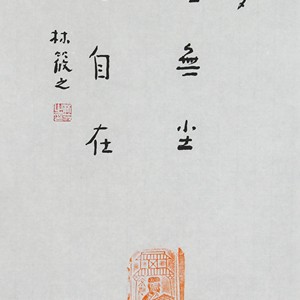 無尘
自在
林筱之